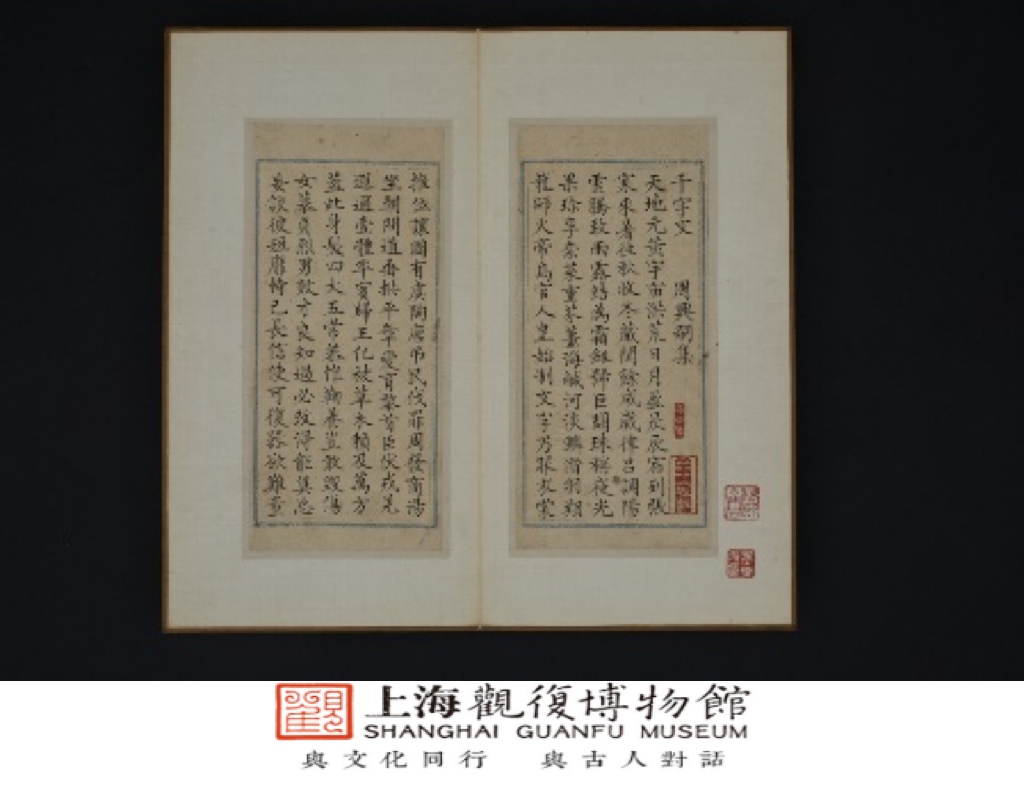 千字文 周興嗣集
天地元黃宇宙洪荒日月盈昃辰宿列張
寒來暑往秋收冬藏閏餘成歲律呂調陽
雲騰致雨露結為霜劍號巨闕珠稱夜光
果珍李柰菜重芥薑海鹹河淡鱗潛羽翔
龍師火帝鳥官人皇始制文字乃服衣裳
推位讓國有虞陶唐弔民伐罪周發商湯
坐朝問道垂拱平章愛育黎首臣伏戎羌
遐邇壹體率賓歸王化被草木賴及萬方
蓋此身髮四大五常恭惟鞠養豈敢毀傷
女慕貞烈男效才良知過必改得能莫忘
罔談彼短靡恃己長信使可復器欲難量
上海觀復博物館
SHANGHAI GUANFU MUSEUM
與文化同行 與古人對話